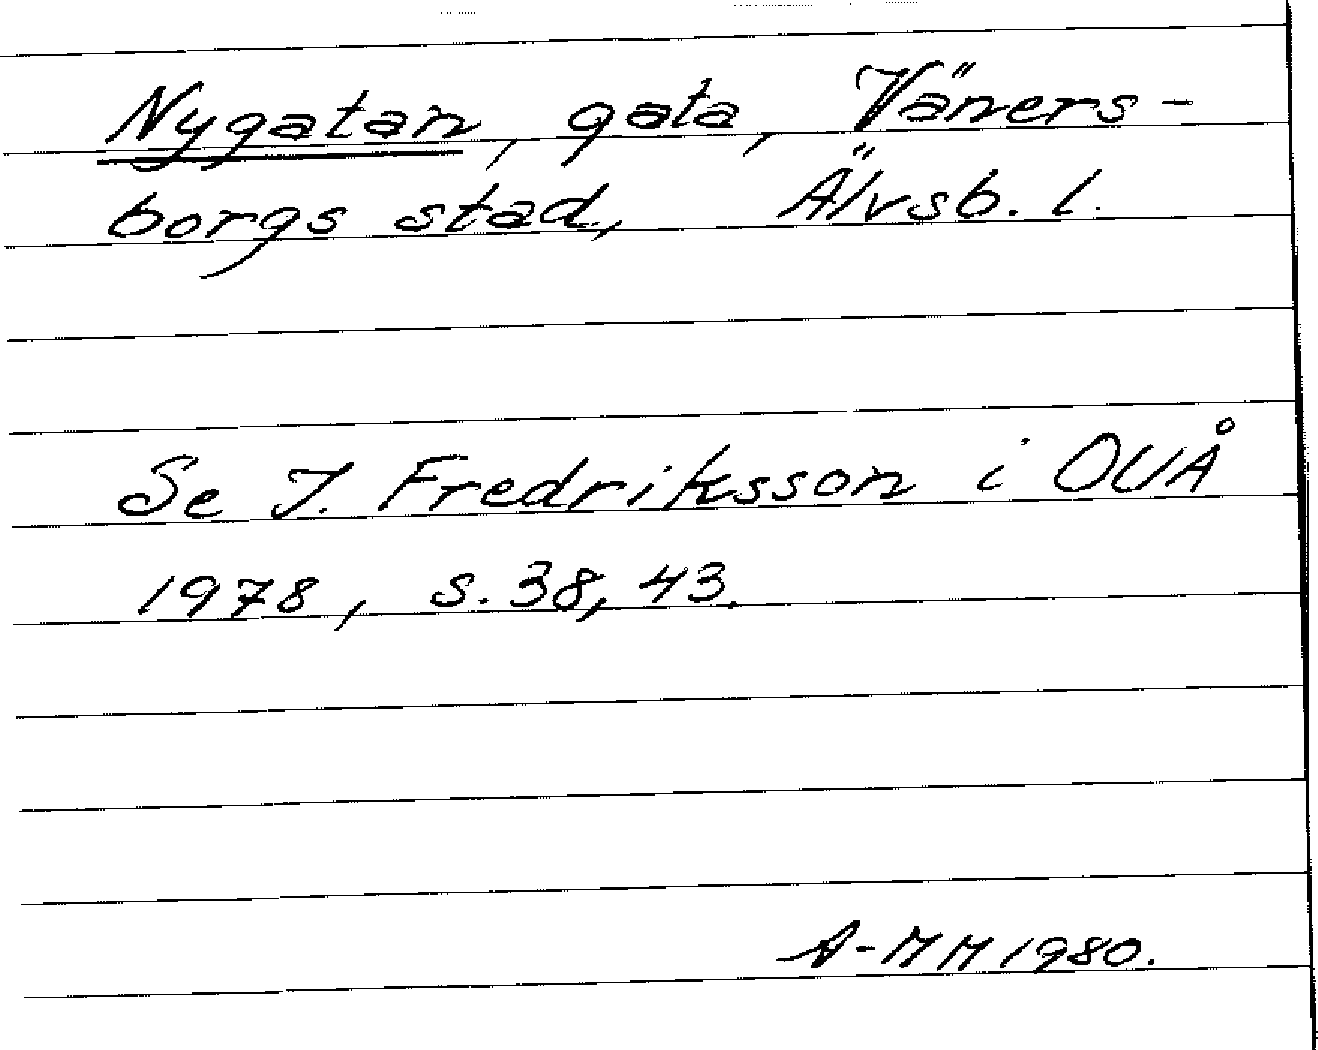 Nygatan, gata, Väners-
borgs stad, Älvsb. l.
Se I. Fredriksson i OUÅ
1978, s. 38, 43.
A-MM 1980.